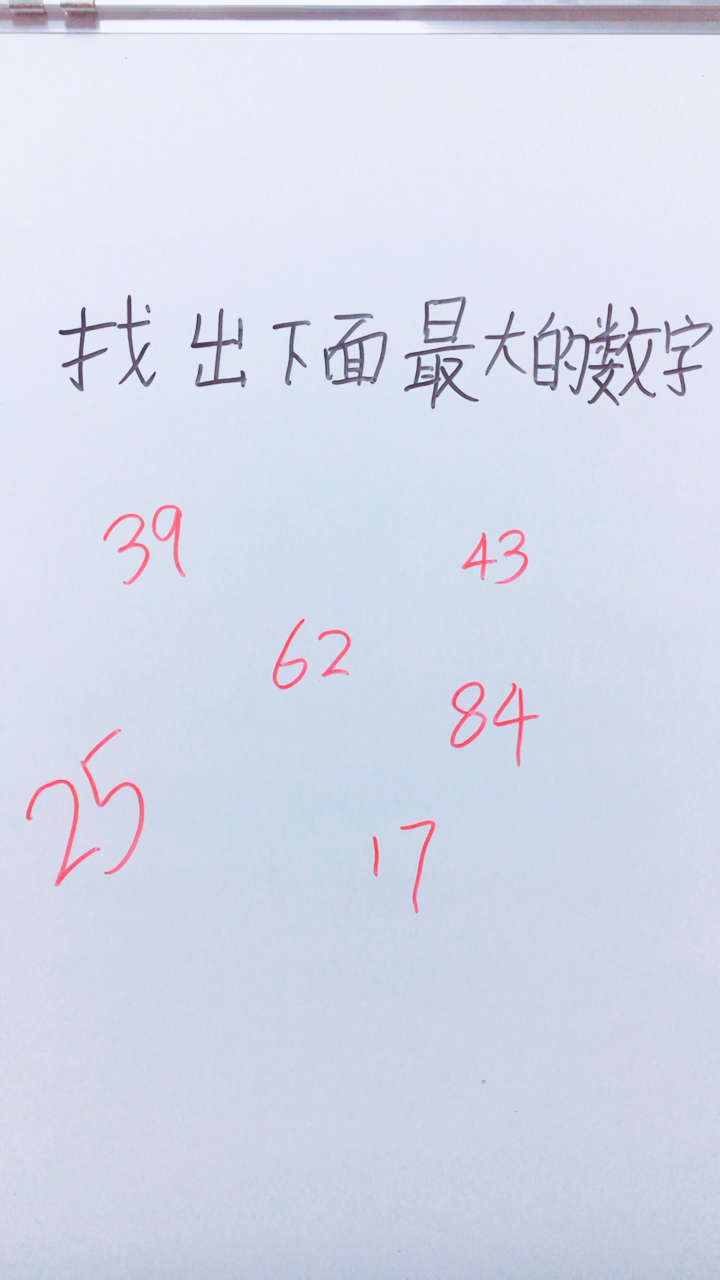 找出下面最大的数字
39
43
62
84
25
17